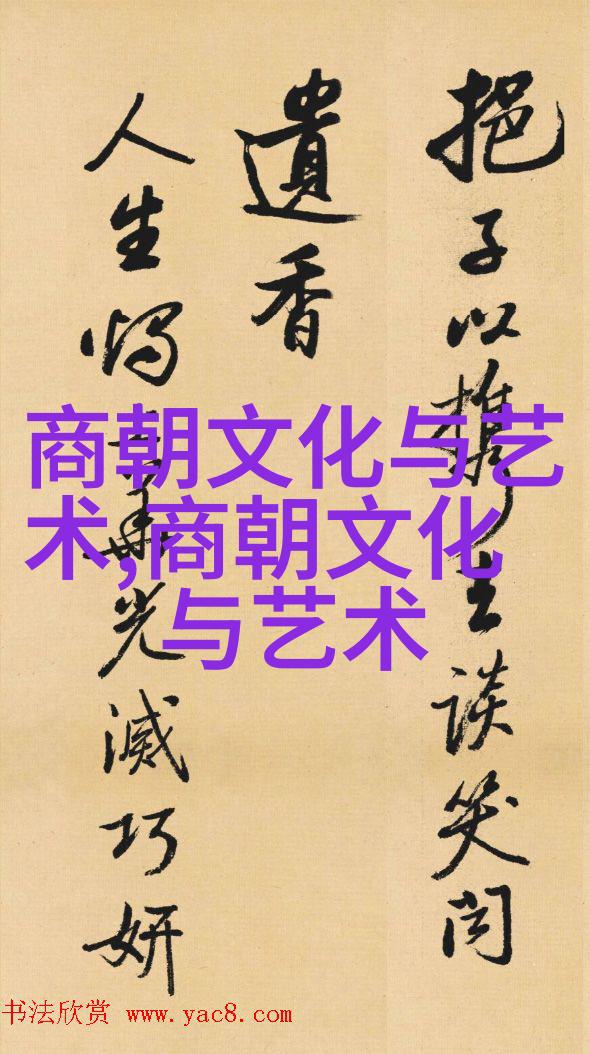 挹子以攜談笑
遺香
人生光滅巧妍
商朝文化与艺
术,商朝文化
与艺术
书法欣赏 www.yac8.com